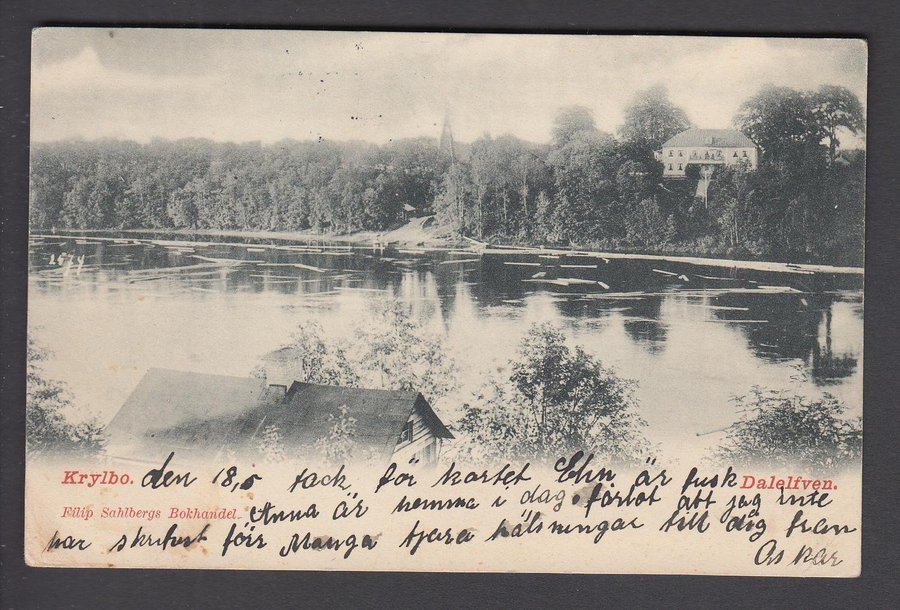 1674
Krylbo. den 18,5 tack för kortet Ehn är fusk Dalelfven.
Filip Sahlbergs Bokhandel. Anna är hemma i dag. förlåt att jag inte
har skrifvit förr Manga kjara hälsningar till dig från
Oskar